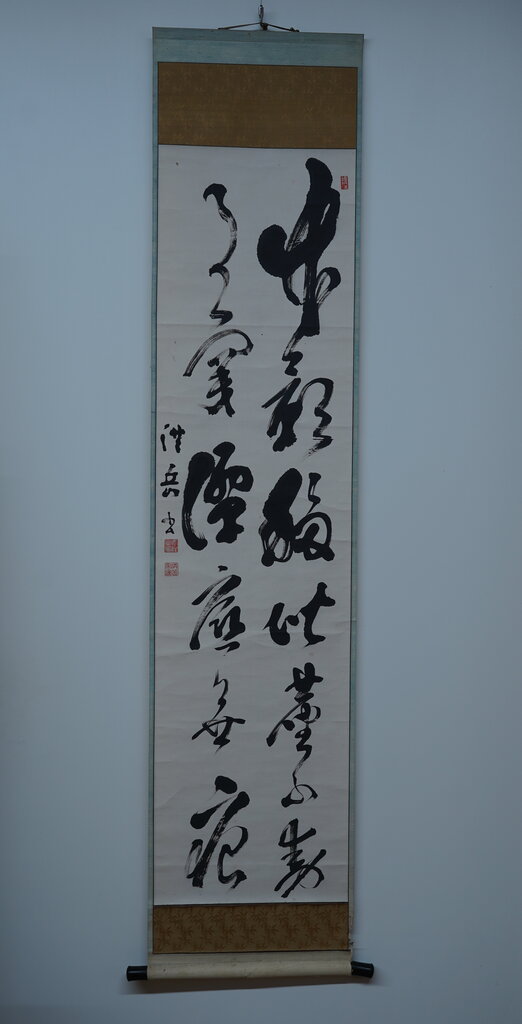 竹影掃階塵不動
月穿潭底水無痕
洪岳書